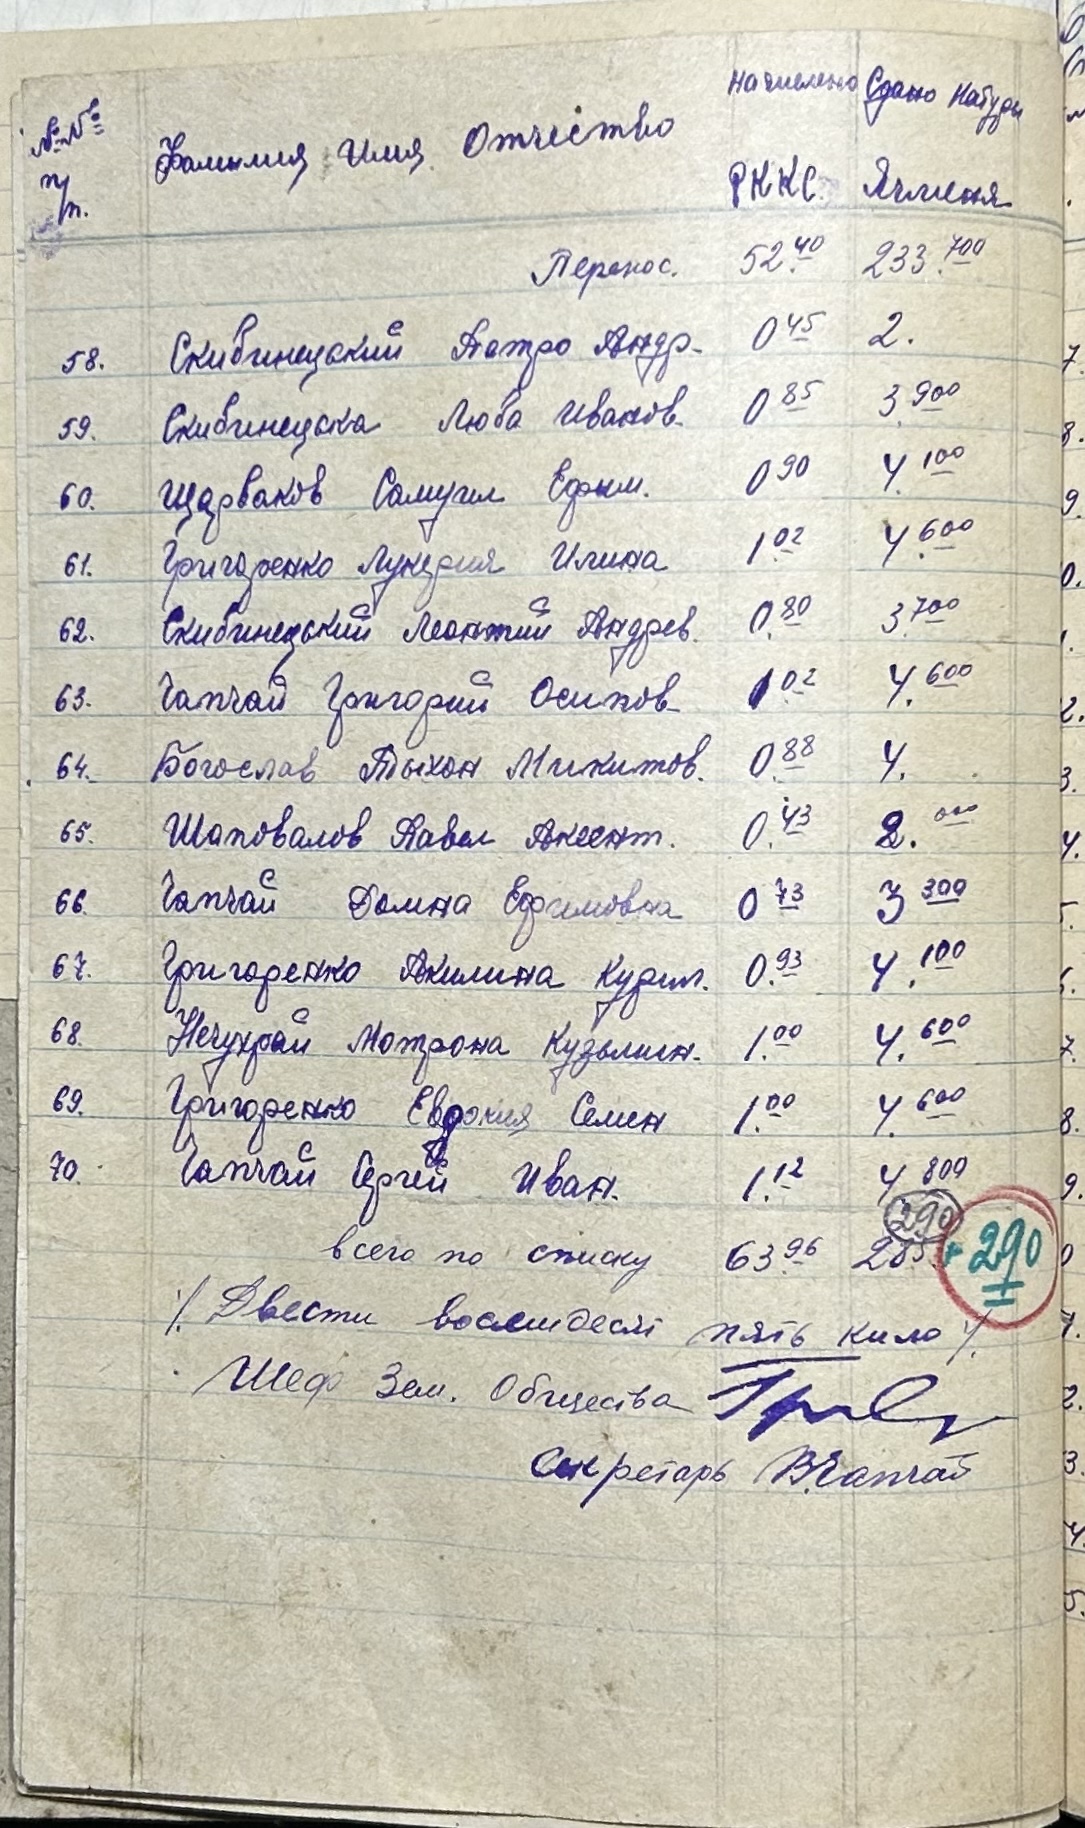 №№ п/п. Фамилия Имя Отчество Начислено РККС. Сдано Натури Ячменя
Перенос. 52.40 233.700
58. Скибинецкий Петро Андр. 0 45 2.
59. Скибинецка Люба Иванов. 0 85 3 900
60. Щарваков Самуил Ефим. 0 90 4. 100
61. Григоренко Лукерия Илина 1 02 4 600
62. Скибинецький Леонтий Андрев. 0.80 3.700
63. Чапчай Григорий Осипов. 1 02 4. 600
64. Богослав Тыхон Микитов. 0.88 4.
65. Шаповалов Павел Аксент. 0. 43 2. 000
66. Чапчай Домна Ефимовна 0 73 3 300
67. Григоренко Акилина Курил. 0.93 4. 100
68. Нечухрай Мотрона Кузьмин. 1.00 4. 600
69. Григоренко Евдокия Семен 1.00 4. 600
70. Чапчай Сергей Иван. 1.12 4 800
290
всего по списку 63.96 285. + 290
/. Двести восемдесят пять кило /.
Шеф Зем. Общества
Секретарь В.Чапчай